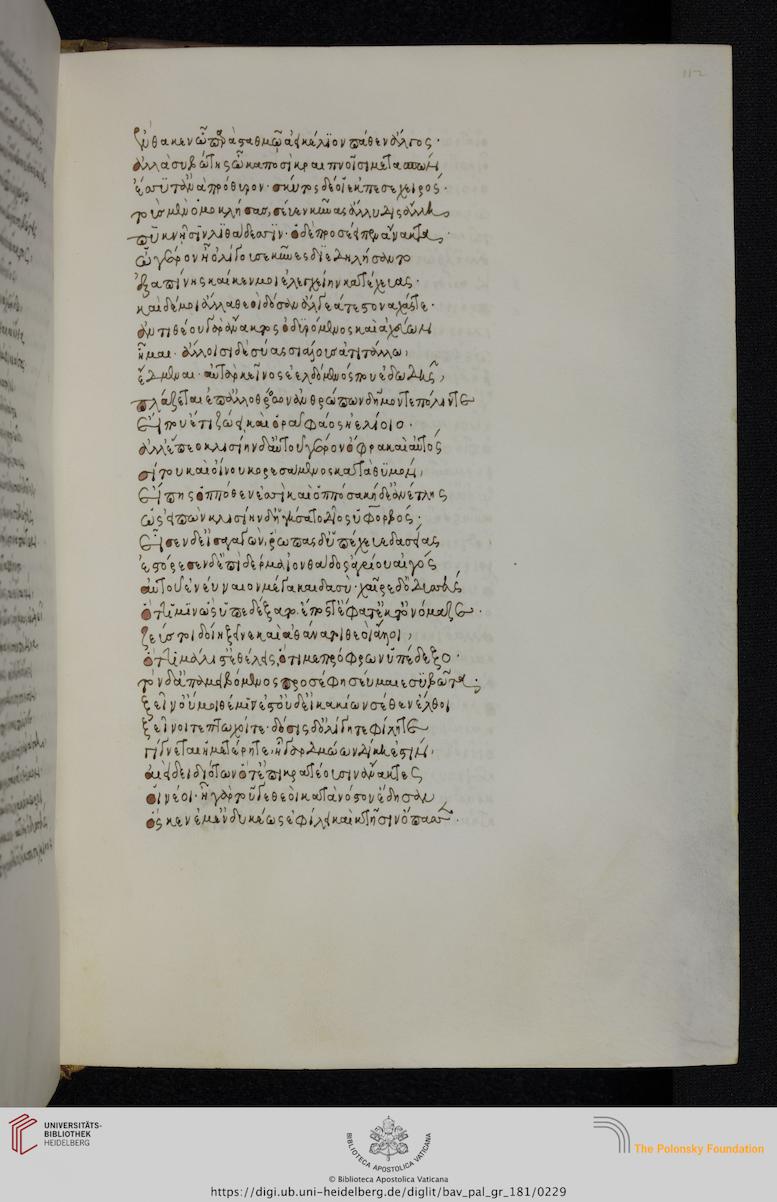 ἔνθα κεν ᾧ παρὰ σταθμῷ ἀεικέλϊον πάθεν ἄλγος·
ἀλλὰ συβώτης ὦκα ποσὶ κραιπνοῖσι μετασπὼν
ἔσσϋτ' ἀνὰ πρόθυρον· σκῦτος δέ οἱ ἔκπεσε χειρός·
τοὺς μὲν ὁμοκλήσας, σεῦεν κύνας ἄλλυδις ἄλλον,
πυκνῇσιν λϊθάδεσσϊν· ὁ δὲ προσέειπεν ἄνακτα,
ὦ γέρον ἦ ὀλίγου σε κύνες δϊεδηλήσαντο
ἐξαπίνης καί κεν μοι ἐλεγχείην κατέχευας·
καὶ δέ μοι ἄλλα θεοὶ δόσαν ἄλγεά τε στοναχάς τε·
ἀντιθέου γὰρ ἄνακτος ὀδϋρόμενος καὶ ἀχεύων
ἧμαι· ἄλλοισι δὲ σύας σιάλους ἀτιτάλλω,
ἔδμεναι· αὐτὰρ κεῖνος ἐελδόμενός που ἐδωδῆς,
πλάζεται ἐπ' ἀλλοθρόων ἀνθρώπων δῆμον τε πόλιν τε
εἴ που ἔτι ζώει καὶ ὁρᾶ φάος ἠελίοιο·
ἀλλ' ἕπεο κλισίηνδ' γέρον ὄφρα καὶ αὐτός
σίτου καὶ οἴνου κορεσσάμενος κατὰ θϋμόν,
εἴπης ὁππόθεν ἐσσὶ καὶ ὁππόσα κήδε' ἀνέτλης
ὣς εἰπὼν κλισίηνδ' ἡγήσατο δῖος ὑφορβός·
εἷσεν δ' εἰσαγαγὼν, ῥῶπας δ' ὑπέχευε δασείας
ἐστόρεσεν δ' ἐπὶ δέρμα ἰονθάδος ἀγρίου αἰγός
αὐτοῦ ἐνεύναιον μέγα καὶ δασύ· χαῖρε δ' ὀδυσσεύς
ὅττί μϊν ὣς ὑπέδεξατο. ἔπος τ' ἔφατ' ἔκ τ' ὀνόμαζε·
ζεύς τοι δοίη ξεῖνε καὶ ἀθάνατοι θεοὶ ἄλλοι,
ὅττι μάλιστ' ἐθέλεις, ὅτι με πρόφρων ὑπέδεξο·
τὸν δ' ἀπαμειβόμενος προσέφησ εὔμαιε συβῶτα·
ξεῖν' οὔ μοι θέμϊς ἔστ' οὐδ' εἰ κακίων σέθεν ἔλθοι
ξεῖνοι τε πτωχοί τε· δόσις δ' ὀλίγη τε φίλη τε
γίγνεται ἡμετέρη τε, ἡ γὰρ δμώων δίκη ἐστὶν,
αἰεὶ δειδιότων ὅτ' ἐπικρατέουσιν ἄνακτες
οἱ νέοι· ἦ γὰρ τοῦ γε θεοὶ κατὰ νόστον ἔδησαν
ὅς κεν ἔμ' ἐνδυκέως ἐφίλει καὶ κτῆσιν ὄπασσεν·
112
UNIVERSITÄTS-
BIBLIOTHEK
HEIDELBERG
BIBLIOTECA APOSTOLICA VATICANA
The Polonsky Foundation
© Biblioteca Apostolica Vaticana
https://digi.ub.uni-heidelberg.de/diglit/bav_pal_gr_181/0229